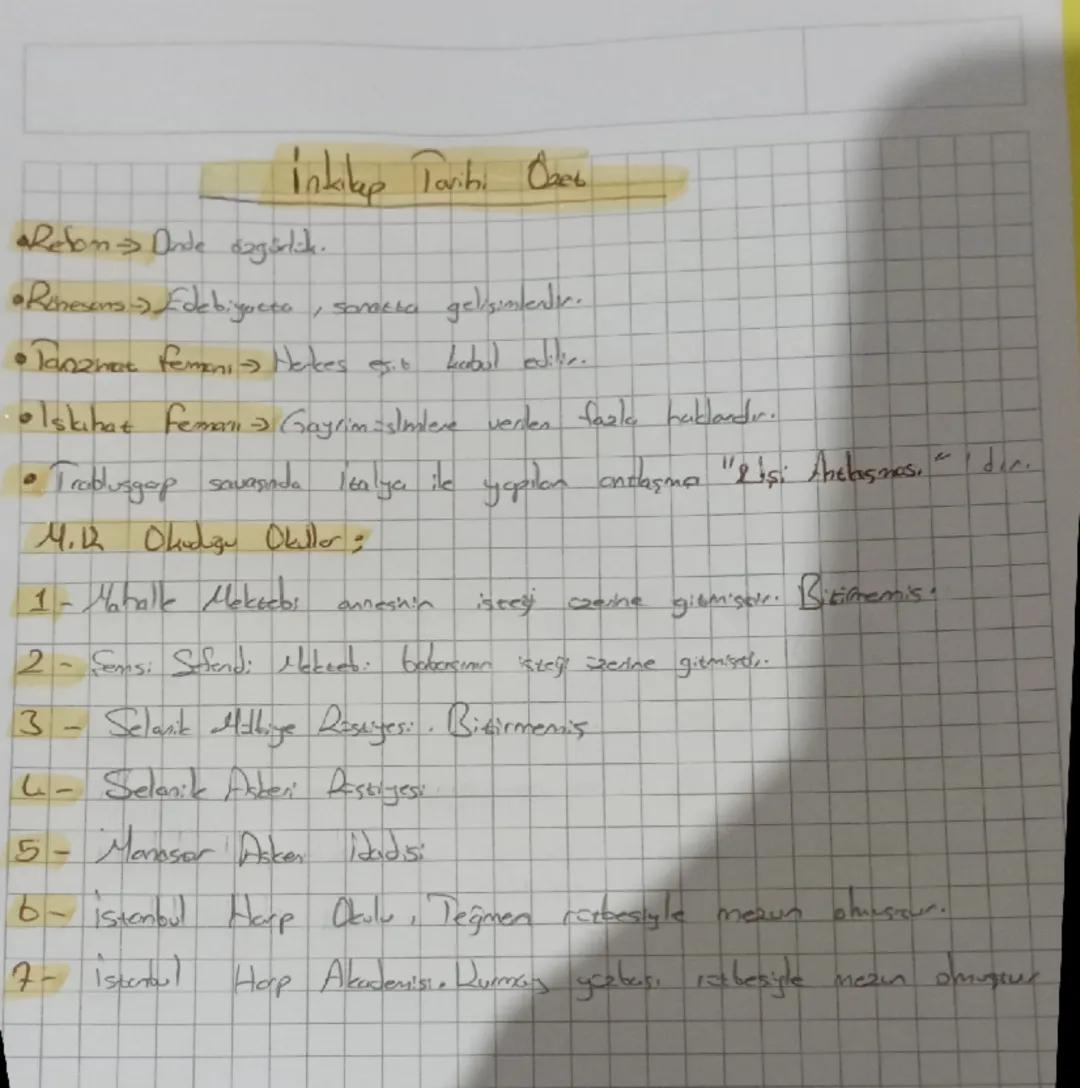 İnkılap Tarihi Özet
•Reform → Dinde özgürlük.
•Rönesans → Edebiyatta, sanatta gelişimlerdir.
•Tanzimat fermanı → Herkes eşit kabul edilir.
•Islahat fermanı → Gayrimüslimlere verilen fazla haklardır.
•Trablusgarp savaşında İtalya ile yapılan antlaşma "Uşi Antlaşması" dır.
M.K Okuduğu Okullar;
1- Mahalle Mektebi annesinin isteği üzerine gitmiştir. Bitirmemiş.
2- Şemsi Efendi Mektebi babasının isteği üzerine gitmiştir.
3- Selanik Mülkiye Rüştiyesi. Bitirmemiş
4- Selanik Askeri Rüştiyesi
5- Manastır Askeri İdadisi
6- İstanbul Harp Okulu, Teğmen rütbesiyle mezun olmuştur.
7- İstanbul Harp Akademisi. Kurmay yüzbaşı rütbesiyle mezun olmuştur